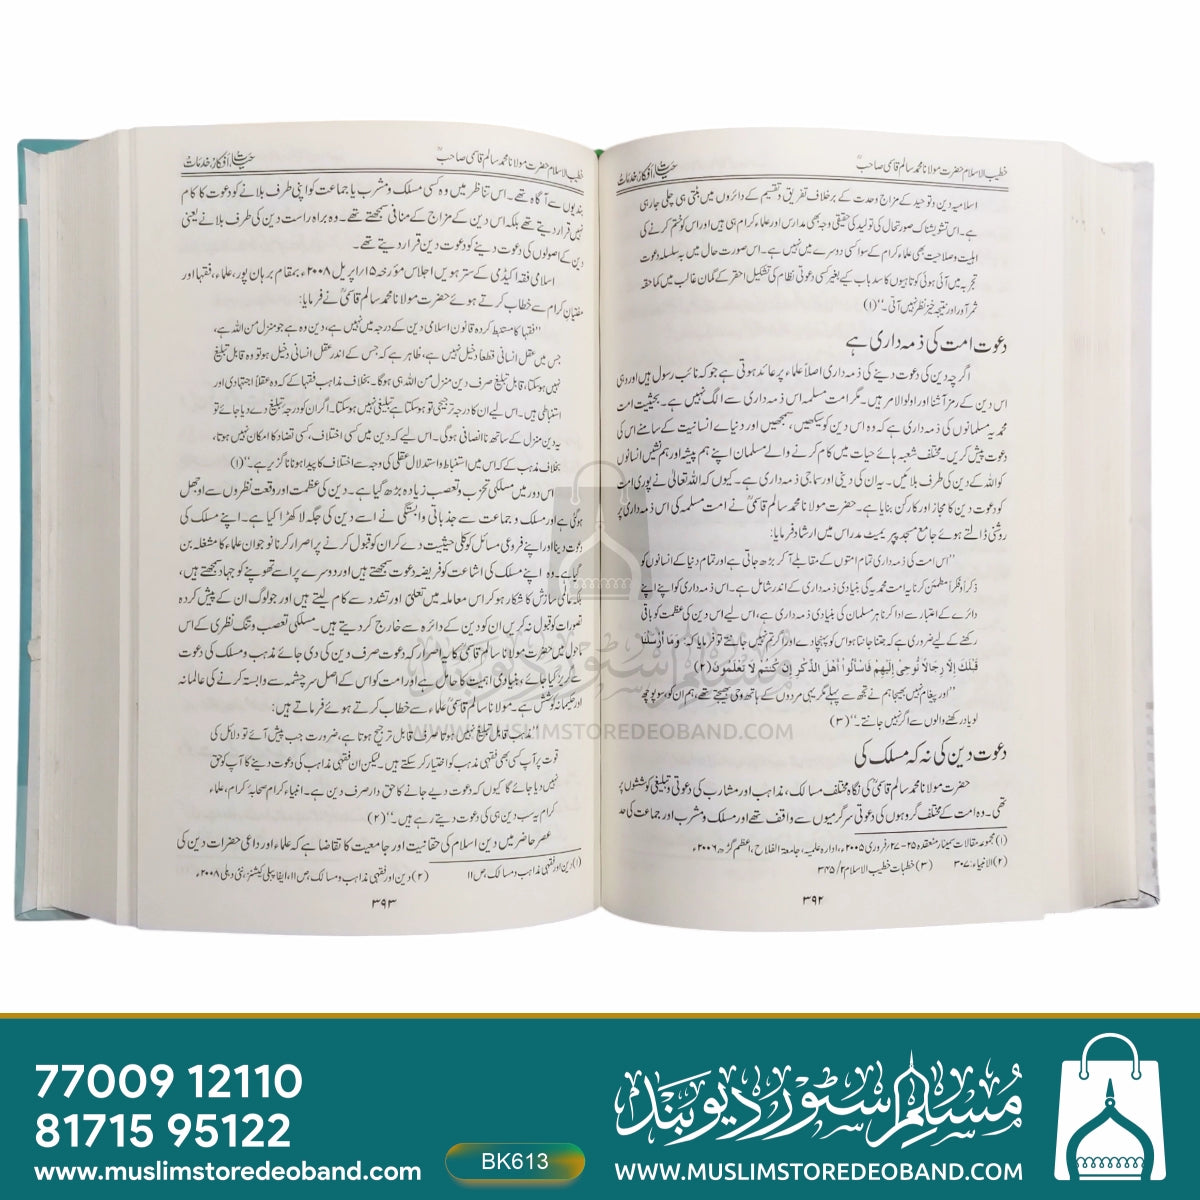 خطیب الاسلام حضرت مولانا محمد سالم قاسمی صاحبؒ
حیات، افکار، خدمات
اسلامیہ دین و توحید کے مزاج وحدت کے برخلاف تفریق و تقسیم کے دائروں میں بٹتی ہی چلی جا رہی
ہے۔ اس تشویشناک صورتحال کی تولید کی حقیقی وجہ بھی مدارس اور علماء کرام ہی ہیں اور اس کو ختم کرنے کی
اہلیت و صلاحیت بھی علماء کرام کے سوا کسی دوسرے میں نہیں ہے۔ اس صورت حال میں بہ سلسلہ دعوت
تجربہ میں آئی ہوئی کوتاہیوں کا سد باب کیے بغیر کسی دعوتی نظام کی تشکیل احقر کے گمان غالب میں کماحقہ
ثمر آور اور نتیجہ خیز نظر نہیں آتی۔‘‘ (۱)
دعوت امت کی ذمہ داری ہے
اگرچہ دین کی دعوت دینے کی ذمہ داری اصلاً علماء پر عائد ہوتی ہے جو کہ نائب رسول ہیں اور وہی
اس دین کے رمز آشنا اور اولوالامر ہیں۔ مگر امت مسلمہ اس ذمہ داری سے الگ نہیں ہے۔ بحیثیت امت
محمدیہ مسلمانوں کی ذمہ داری ہے کہ وہ اس دین کو سیکھیں، سمجھیں اور دنیائے انسانیت کے سامنے اس کی
دعوت پیش کریں۔ مختلف شعبہ ہائے حیات میں کام کرنے والے مسلمان اپنے ہم پیشہ اور ہم نشیں انسانوں
کو اللہ کے دین کی طرف بلائیں۔ یہ ان کی دینی اور سماجی ذمہ داری ہے۔ کیوں کہ اللہ تعالیٰ نے پوری امت
کو دعوت دین کا مجاز اور کارکن بنایا ہے۔ حضرت مولانا محمد سالم قاسمیؒ نے امت مسلمہ کی اس ذمہ داری پر
روشنی ڈالتے ہوئے جامع مسجد پیریمیٹ مدراس میں ارشاد فرمایا:
’’اس امت کی ذمہ داری تمام امتوں کے مقابلے آ کر بڑھ جاتی ہے اور تمام دنیا کے انسانوں کو
ذکراً و فکراً مطمئن کرنا یہ امت محمدیہ کی بنیادی ذمہ داری کے اندر شامل ہے۔ اس ذمہ داری کو اپنے اپنے
دائرے کے اعتبار سے ادا کرنا ہر مسلمان کی بنیادی ذمہ داری ہے، اس لیے اس دین کی عظمت کو باقی
رکھنے کے لیے ضروری ہے کہ جتنا جانتا ہو اس کو پہنچا دے اور اگر تم نہیں جانتے تو فرمایا کہ: وَمَا أَرْسَلْنَا
قَبْلَكَ إِلَّا رِجَالًا نُوحِي إِلَيْهِمْ فَاسْأَلُوا أَهْلَ الذِّكْرِ إِنْ كُنْتُمْ لَا تَعْلَمُونَ (۲)
’’اور پیغام نہیں بھیجا ہم نے تجھ سے پہلے مگر یہی مردوں کے ہاتھ وحی بھیجتے تھے، ہم ان کو سو پوچھ
لو یاد رکھنے والوں سے اگر نہیں جانتے۔‘‘ (۳)
دعوت دین کی نہ کہ مسلک کی
حضرت مولانا محمد سالم قاسمیؒ کی نگاہ مختلف مسالک، مذاہب اور مشارب کی دعوتی و تبلیغی کوششوں پر
تھی۔ وہ امت کے مختلف گروہوں کی دعوتی سرگرمیوں سے واقف تھے اور مسلک و مشرب اور جماعت کی حد
(۱) مجموعہ مقالات سیمینار منعقدہ ۲۵-۲۷ فروری ۲۰۰۵ء، ادارہ علمیہ، جامعۃ الفلاح، اعظم گڑھ ۲۰۰۶ء
(۲) الانبیاء: ۷ (۳) خطبات خطیب الاسلام ۳۲۵/۲
۳۹۲
خطیب الاسلام حضرت مولانا محمد سالم قاسمی صاحبؒ
حیات، افکار، خدمات
بندیوں سے آگاہ تھے۔ اس تناظر میں وہ کسی مسلک و مشرب یا جماعت کو اپنی طرف بلانے کو دعوت کا کام
نہیں قرار دیتے تھے بلکہ اس دین کے مزاج کے منافی سمجھتے تھے۔ وہ براہ راست دین کی طرف بلانے یعنی
دین کے اصولوں کی دعوت دینے کو دعوت دین قرار دیتے تھے۔
اسلامی فقہ اکیڈمی کے سترہویں اجلاس مؤرخہ ۱۵ اپریل ۲۰۰۸ء بمقام برہان پور، علماء، فقہا اور
مفتیان کرام سے خطاب کرتے ہوئے حضرت مولانا محمد سالم قاسمیؒ نے فرمایا:
’’فقہا کا مستنبط کردہ قانون اسلامی دین کے درجہ میں نہیں ہے، دین وہ ہے جو منزل من اللہ ہے،
جس میں عقل انسانی قطعاً دخیل نہیں ہے، ظاہر ہے کہ جس کے اندر عقل انسانی دخیل ہو تو وہ قابل تبلیغ
نہیں ہو سکتا، قابل تبلیغ صرف دین منزل من اللہ ہی ہوگا۔ بخلاف مذاہب فقہا کے کہ وہ عقلاً اجتہادی اور
استنباطی ہیں۔ اس لیے ان کا درجہ ترجیحی تو ہو سکتا ہے تبلیغی نہیں ہو سکتا۔ اگر ان کو درجہ تبلیغ دے دیا جائے تو
یہ دین منزل کے ساتھ ناانصافی ہوگی۔ اس لیے کہ دین میں کسی اختلاف، کسی تضاد کا امکان نہیں ہوتا،
بخلاف مذہب کے کہ اس میں استنباط و استدلال عقلی کی وجہ سے اختلاف کا پیدا ہونا ناگزیر ہے۔‘‘ (۱)
اس دور میں مسلکی تحزب و تعصب زیادہ بڑھ گیا ہے۔ دین کی عظمت اور وقعت نظروں سے اوجھل
ہوگئی ہے اور مسلک و جماعت سے جذباتی وابستگی نے اسے دین کی جگہ لا کھڑا کیا ہے۔ اپنے مسلک کی
دعوت دینا اور اپنے فروعی مسائل کو کلی حیثیت دے کر ان کو قبول کرنے پر اصرار کرنا نوجوان علماء کا مشغلہ بن
گیا ہے۔ وہ اپنے مسلک کی اشاعت کو فریضہ دعوت سمجھتے ہیں اور دوسرے پر اسے تھوپنے کو جہاد سمجھتے ہیں،
بلکہ عالمی سازش کا شکار ہو کر اس معاملہ میں تعلی اور تشدد سے کام لیتے ہیں اور جو لوگ ان کے پیش کردہ
تصورات کو قبول نہ کریں ان کو دین کے دائرہ سے خارج کر دیتے ہیں۔ مسلکی تعصب و تنگ نظری کے اس
ماحول میں حضرت مولانا سالم قاسمیؒ کا اصرار کہ دعوت صرف دین کی دی جائے مذہب و مسلک کی دعوت
سے گریز کیا جائے، بنیادی اہمیت کا حامل ہے اور امت کو اس کے اصل سرچشمہ سے وابستہ کرنے کی عالمانہ
اور حکیمانہ کوشش ہے۔ مولانا سالم قاسمیؒ علماء سے خطاب کرتے ہوئے فرماتے ہیں:
’’مذہب قابل تبلیغ نہیں ہوتا صرف قابل ترجیح ہوتا ہے، ضرورت جب پیش آئے تو دلائل کی
قوت پر آپ کسی بھی فقہی مذہب کو اختیار کر سکتے ہیں۔ لیکن ان فقہی مذاہب کی دعوت دینے کا آپ کو حق
نہیں دیا جائے گا کیوں کہ دعوت دیے جانے کا حق دار صرف دین ہے۔ انبیاء کرام، صحابہ کرام، علماء
کرام یہ سب دین ہی کی دعوت دیتے رہے ہیں۔‘‘ (۲)
عصر حاضر میں دین اسلام کی حقانیت اور جامعیت کا تقاضا ہے کہ علماء اور داعی حضرات دین کی
(۱) دین اور فقہی مذاہب و مسالک ص ۱۱ (۲) دین اور فقہی مذاہب و مسالک ص ۱۱، ایفا پبلی کیشنز، نئی دہلی ۲۰۰۸ء
۳۹۳
مسلم سٹور دیوبند
WWW.MUSLIMSTOREDEOBAND.COM
77009 12110
81715 95122
www.muslimstoredeoband.com
BK613
مسلم سٹور دیوبند
WWW.MUSLIMSTOREDEOBAND.COM